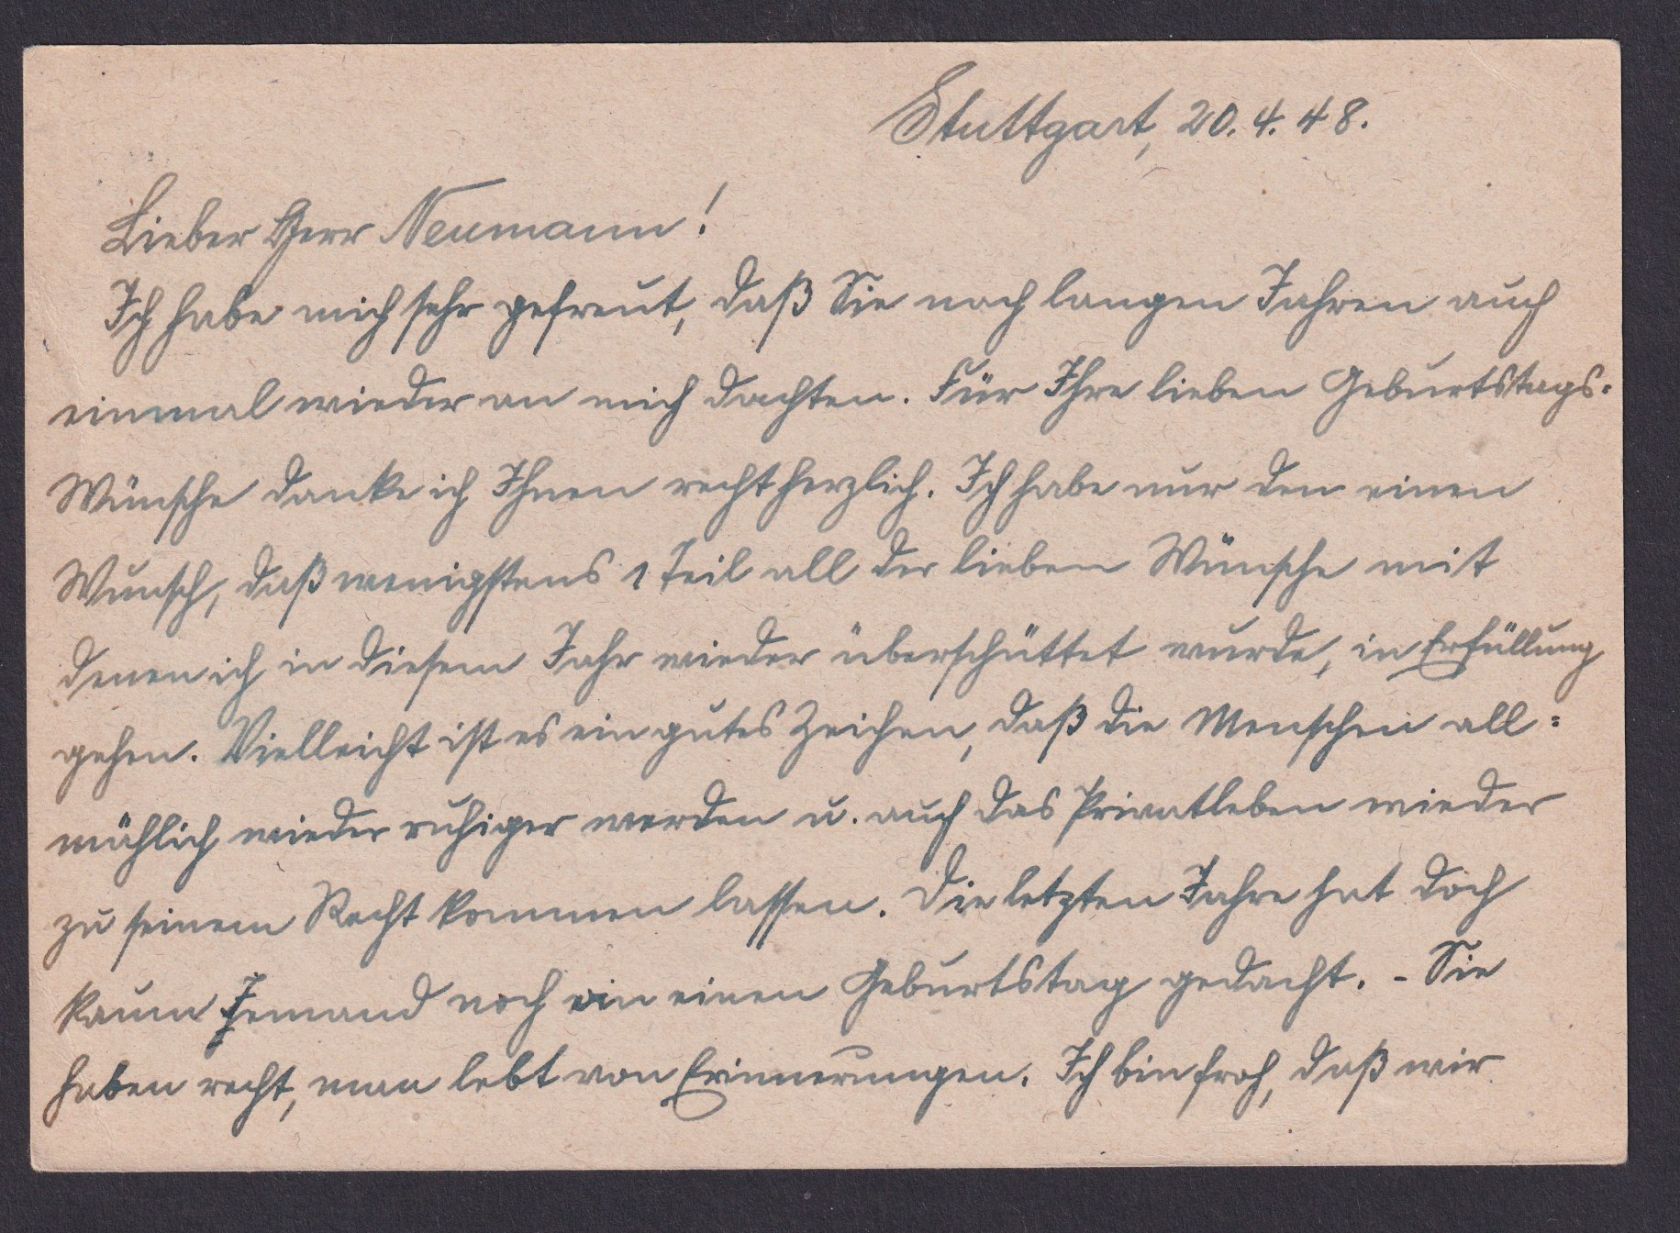 Stuttgart, 20.4.48.
Lieber Herr Neumann!
Ich habe mich sehr gefreut, daß Sie nach langen Jahren auch
einmal wieder an mich dachten. Für Ihre lieben Geburtstags=
Wünsche danke ich Ihnen recht herzlich. Ich habe nur den einen
Wunsch, daß wenigstens 1 Teil all der lieben Wünsche mit
denen ich in diesem Jahr wieder überschüttet wurde, in Erfüllung
gehen. Vielleicht ist es ein gutes Zeichen, daß die Menschen all=
mählich wieder ruhiger werden u. auch das Privatleben wieder
zu seinem Recht kommen lassen. Die letzten Jahre hat doch
kaum Jemand noch an einen Geburtstag gedacht. - Sie
haben recht, man lebt von Erinnerungen. Ich bin froh, daß wir